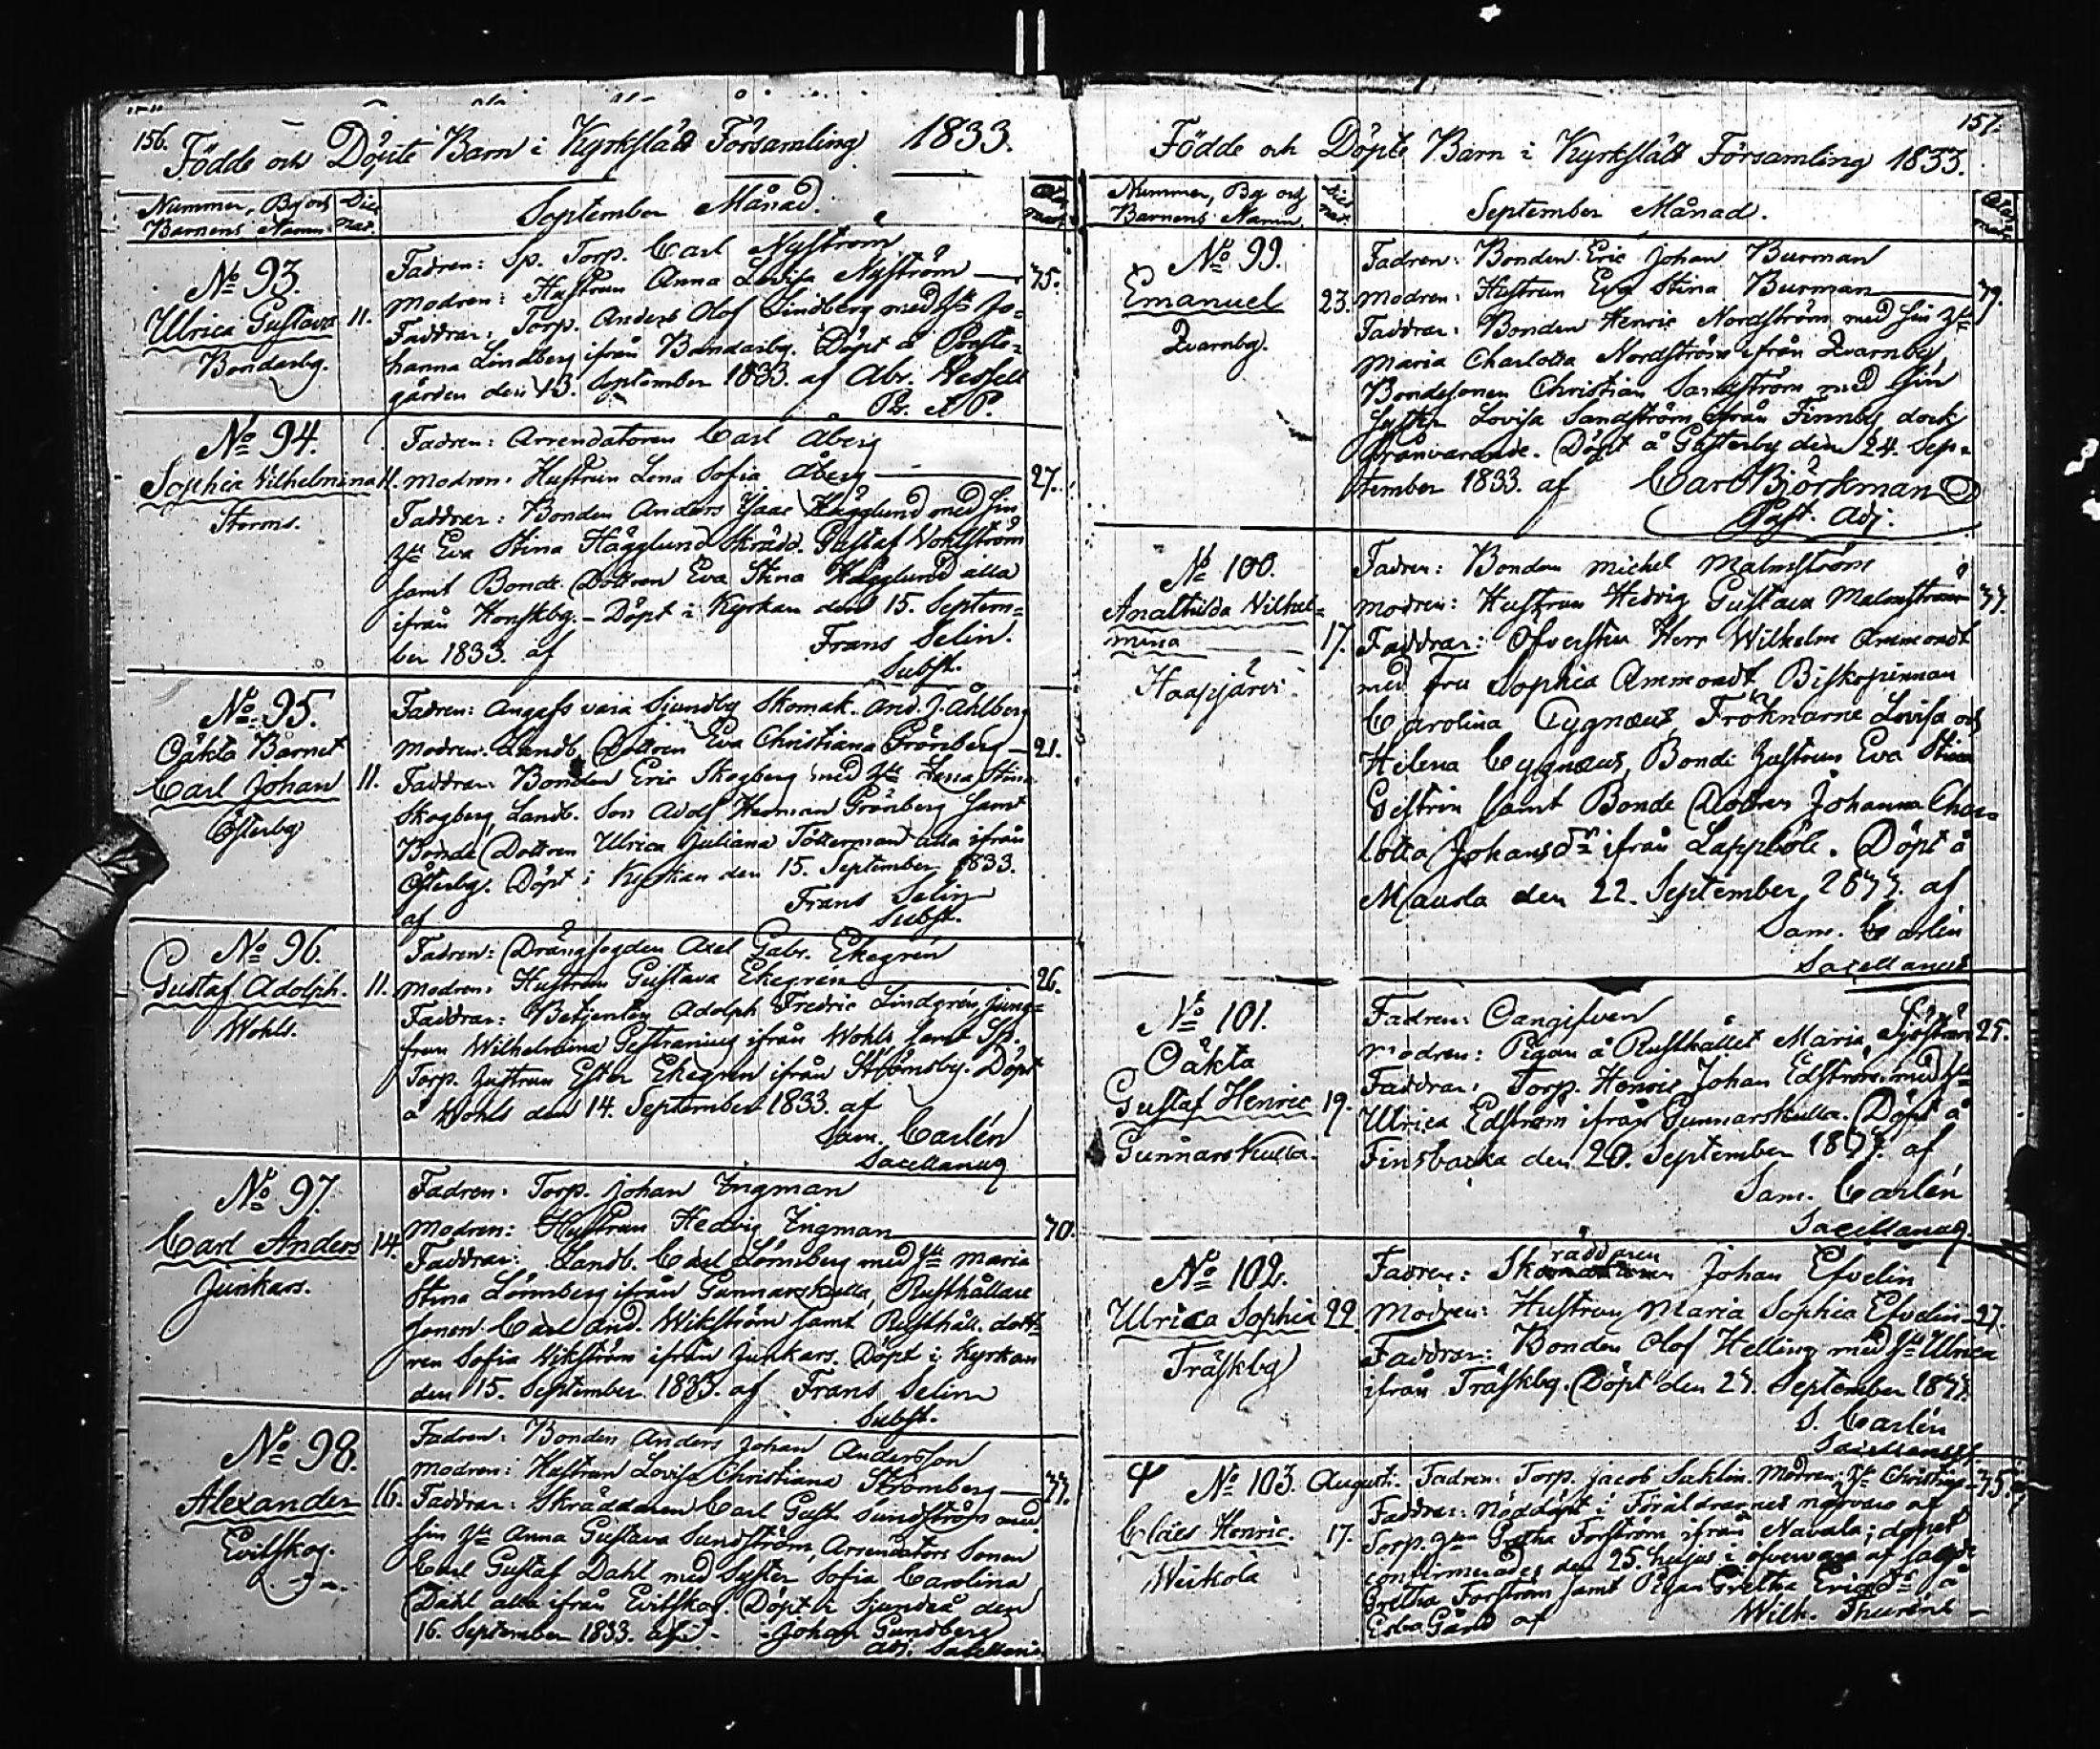 156.
Födde och Döpte Barn i Kyrkslätt Församling 1833.
Nummer, By och Barnens Namn
Dies nat.
September Månad.
No 93.
Ulrica Gustava 11.
Bondarby.
Fadren: Sp. Torp. Carl Nyström
Modren: Hustrun Anna Lovisa Nyström — 35.
Faddrar: Torp. Anders Olof Lindberg med Hu Jo=
hanna Lindberg ifrån Bondarby. Döpt å Preste=
gården den 13. September 1833. af Abr. Hessell
No 94.
Sophia Vilhelmina 11.
Storms.
Fadren: Arrendatoren Carl Åberg
Modren: Hustrun Lena Sofia Åberg — 27.
Faddrar: Bonden Anders Isaac Hägglund med sin
Hu Eva Stina Hägglund Skrädd. Gustaf Wohlström
samt Bonde Dottren Eva Stina Hägglund alla
ifrån Honskby. - Döpt i Kyrkan den 15. Septem=
ber 1833. af Frans Selin.
Subst.
No 95.
Oäkta Barnet
Carl Johan 11.
Österby
Fadren: Angafs vara Sjundby Skomak. And. J. Åhlberg
Modren: Landb. Dottren Eva Christiana Grönberg — 21.
Faddrar: Bonden Eric Skogberg med Hu Lena Stina
Skogberg, Landb. Son Adolf Herman Grönberg samt
Bonde Dottren Ulrica Juliana Tötterman alla ifrån
Österby. Döpt i Kyrkan den 15. September 1833.
af Frans Selin
Subst.
No 96.
Gustaf Adolph. 11.
Wohls.
Fadren: Drängfogden Axel Gabr. Ekegrén
Modren: Hustrun Gustava Ekegrén — 26.
Faddrar: Betjenten Adolph Fredric Lindgrén, Jung=
frun Wilhelmina Gestranius ifrån Wohls samt Sp.
Torp. Hustrun Ester Ekegren ifrån Strömsby. Döpt
å Wohls den 14. September 1833. af
Sam. Carlén
Sacellanus
No 97.
Carl Anders 14.
Junkars.
Fadren: Torp. Johan Ingman
Modren: Hustrun Hedvig Ingman — 30.
Faddrar: Landb. Carl Lönnberg med Hu Maria
Stina Lönnberg ifrån Gunnarskulla, Rusthållare
Sonen Carl And. Wikström samt Rusthåll. dott=
ren Sofia Wikström ifrån Junkars. Döpt i Kyrkan
den 15. September 1833. af Frans Selin
Subst.
No 98.
Alexander 16.
Evitskog.
Fadren: Bonden Anders Johan Andersson
Modren: Hustrun Lovisa Christiana Strömberg — 33.
Faddrar: Skräddaren Carl Gust. Sundström med
sin Hu Anna Gustava Sundström, Arrendators Sonen
Carl Gustaf Dahl med Syster Sofia Carolina
Dahl alla ifrån Evitskog. Döpt i Sjundeå den
16. September 1833. af Johan Gundberg
Adj. Sacellani.
157.
Födde och Döpte Barn i Kyrkslätt Församling 1833.
Nummer, By och Barnens Namn
Dies nat.
September Månad.
No 99.
Emanuel 23.
Qvarnby.
Fadren: Bonden Eric Johan Burman
Modren: Hustrun Eva Stina Burman — 39.
Faddrar: Bonden Henric Nordström med sin Hu
Maria Charlotta Nordström ifrån Qvarnby,
Bondesonen Christian Sandström med sin
Syster Lovisa Sandström ifrån Finnby, dock
frånvarande. Döpt å Gesterby den 24. Sep=
tember 1833. af Carl Björkman
Past. Adj.
No 100.
Amathilda Vilhel=
mina 17.
Haapjärvi.
Fadren: Bonden Michel Malmström
Modren: Hustrun Hedvig Gustava Malmström 33.
Faddrar: Öfversten Herr Wilhelm Ammondt
med Fru Sophia Ammondt, Biskopinnan
Carolina Cygnæus, Fröknarne Lovisa och
Helena Cygnæus, Bonde Hustrun Eva Stina
Giströn samt Bonde Dottren Johanna Char=
lotta Johansdr ifrån Lappböle. Döpt å
den 22. September 1833. af
Sam. Carlén
Sacellanus
No 101.
Oäkta
Gustaf Henric 19.
Gunnarskulla.
Fadren: Oangifven
Modren: Pigan å Rusthållet Maria Sjöström 25.
Faddrar: Torp. Henric Johan Edström med Hu
Ulrica Edström ifrån Gunnarskulla. Döpt å
Finsbacka den 20. September 1833. af
Sam. Carlén
Sacellanus
No 102.
Ulrica Sophia 22.
Träskby
Fadren: Skräddaren Johan Efvelin
Modren: Hustrun Maria Sophia Efvelin — 27.
Faddrar: Bonden Olof Helling med Hu Ulrica
ifrån Träskby. Döpt den 23. September 1833.
S. Carlén
Sacellanus
No 103. Augusti.
Claes Henric. 17.
Weikola
Fadren: Torp. Jacob Sahlin. Modren: Hu Christina — 35.
Faddrar: Nöddöpt i Föräldrarnes närvaro af
Torp. Hun Gretha Forström ifrån Navala; dopet
confirmerades den 25. hujus i öfvervaro af sagde
Gretha Forström samt Pigan Gretha Ericsdr å
Esbo Gård af Wilh. Thurén